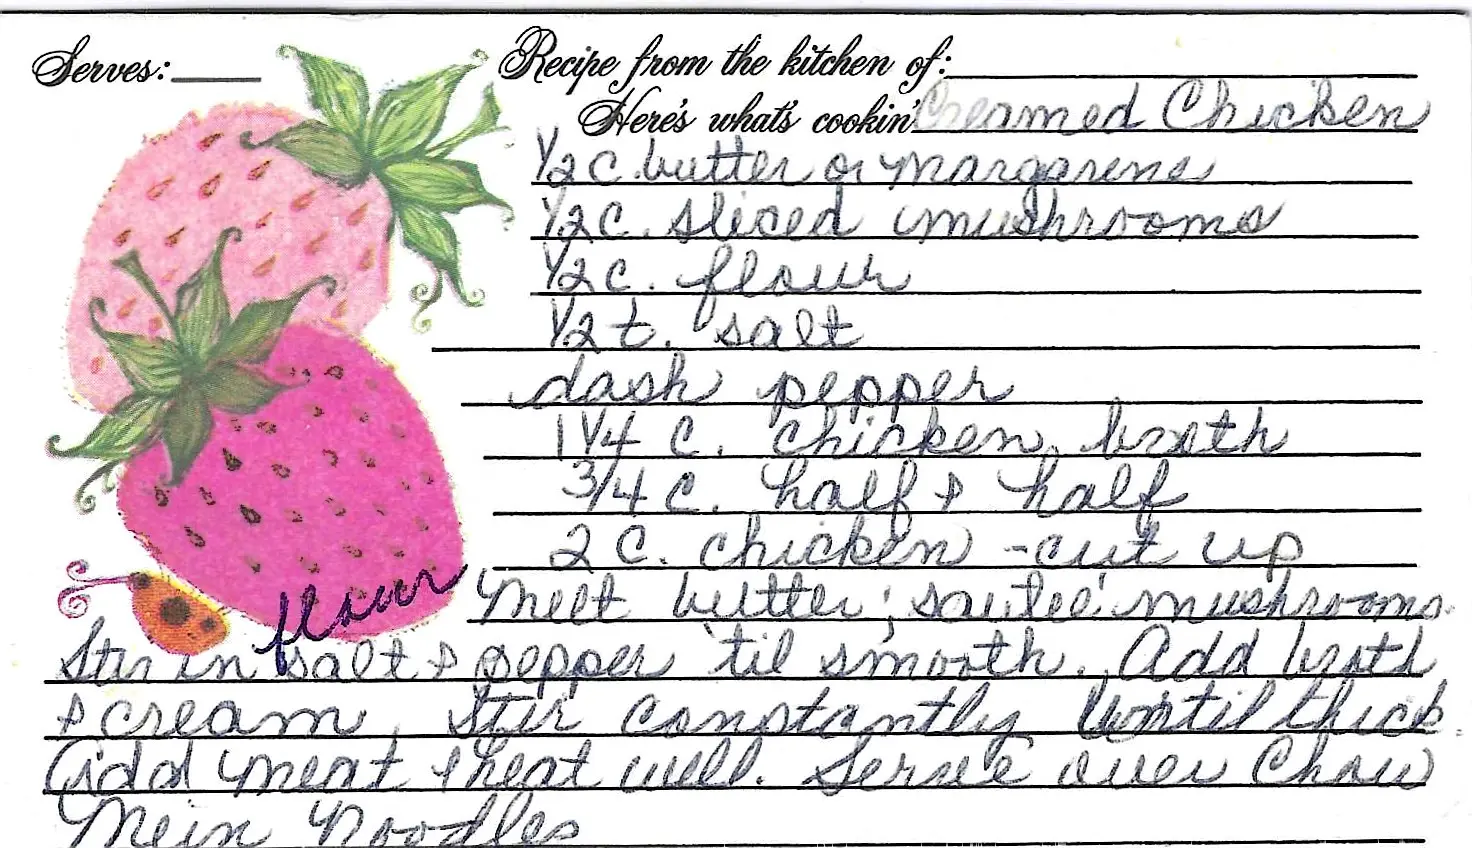 Serves:
Recipe from the kitchen of:
Here's what's cookin' Creamed Chicken
1/2 C. butter or margarine
1/2 C. sliced mushrooms
1/2 C. flour
1/2 t. salt
dash pepper
1 1/4 C. chicken broth
3/4 C. half & half
2 C. chicken - cut up
Melt butter; sautee' mushrooms.
flour
Stir in salt & pepper 'til smooth. Add broth
& cream. Stir constantly until thick.
Add meat & heat well. Serve over Chow
Mein Noodles